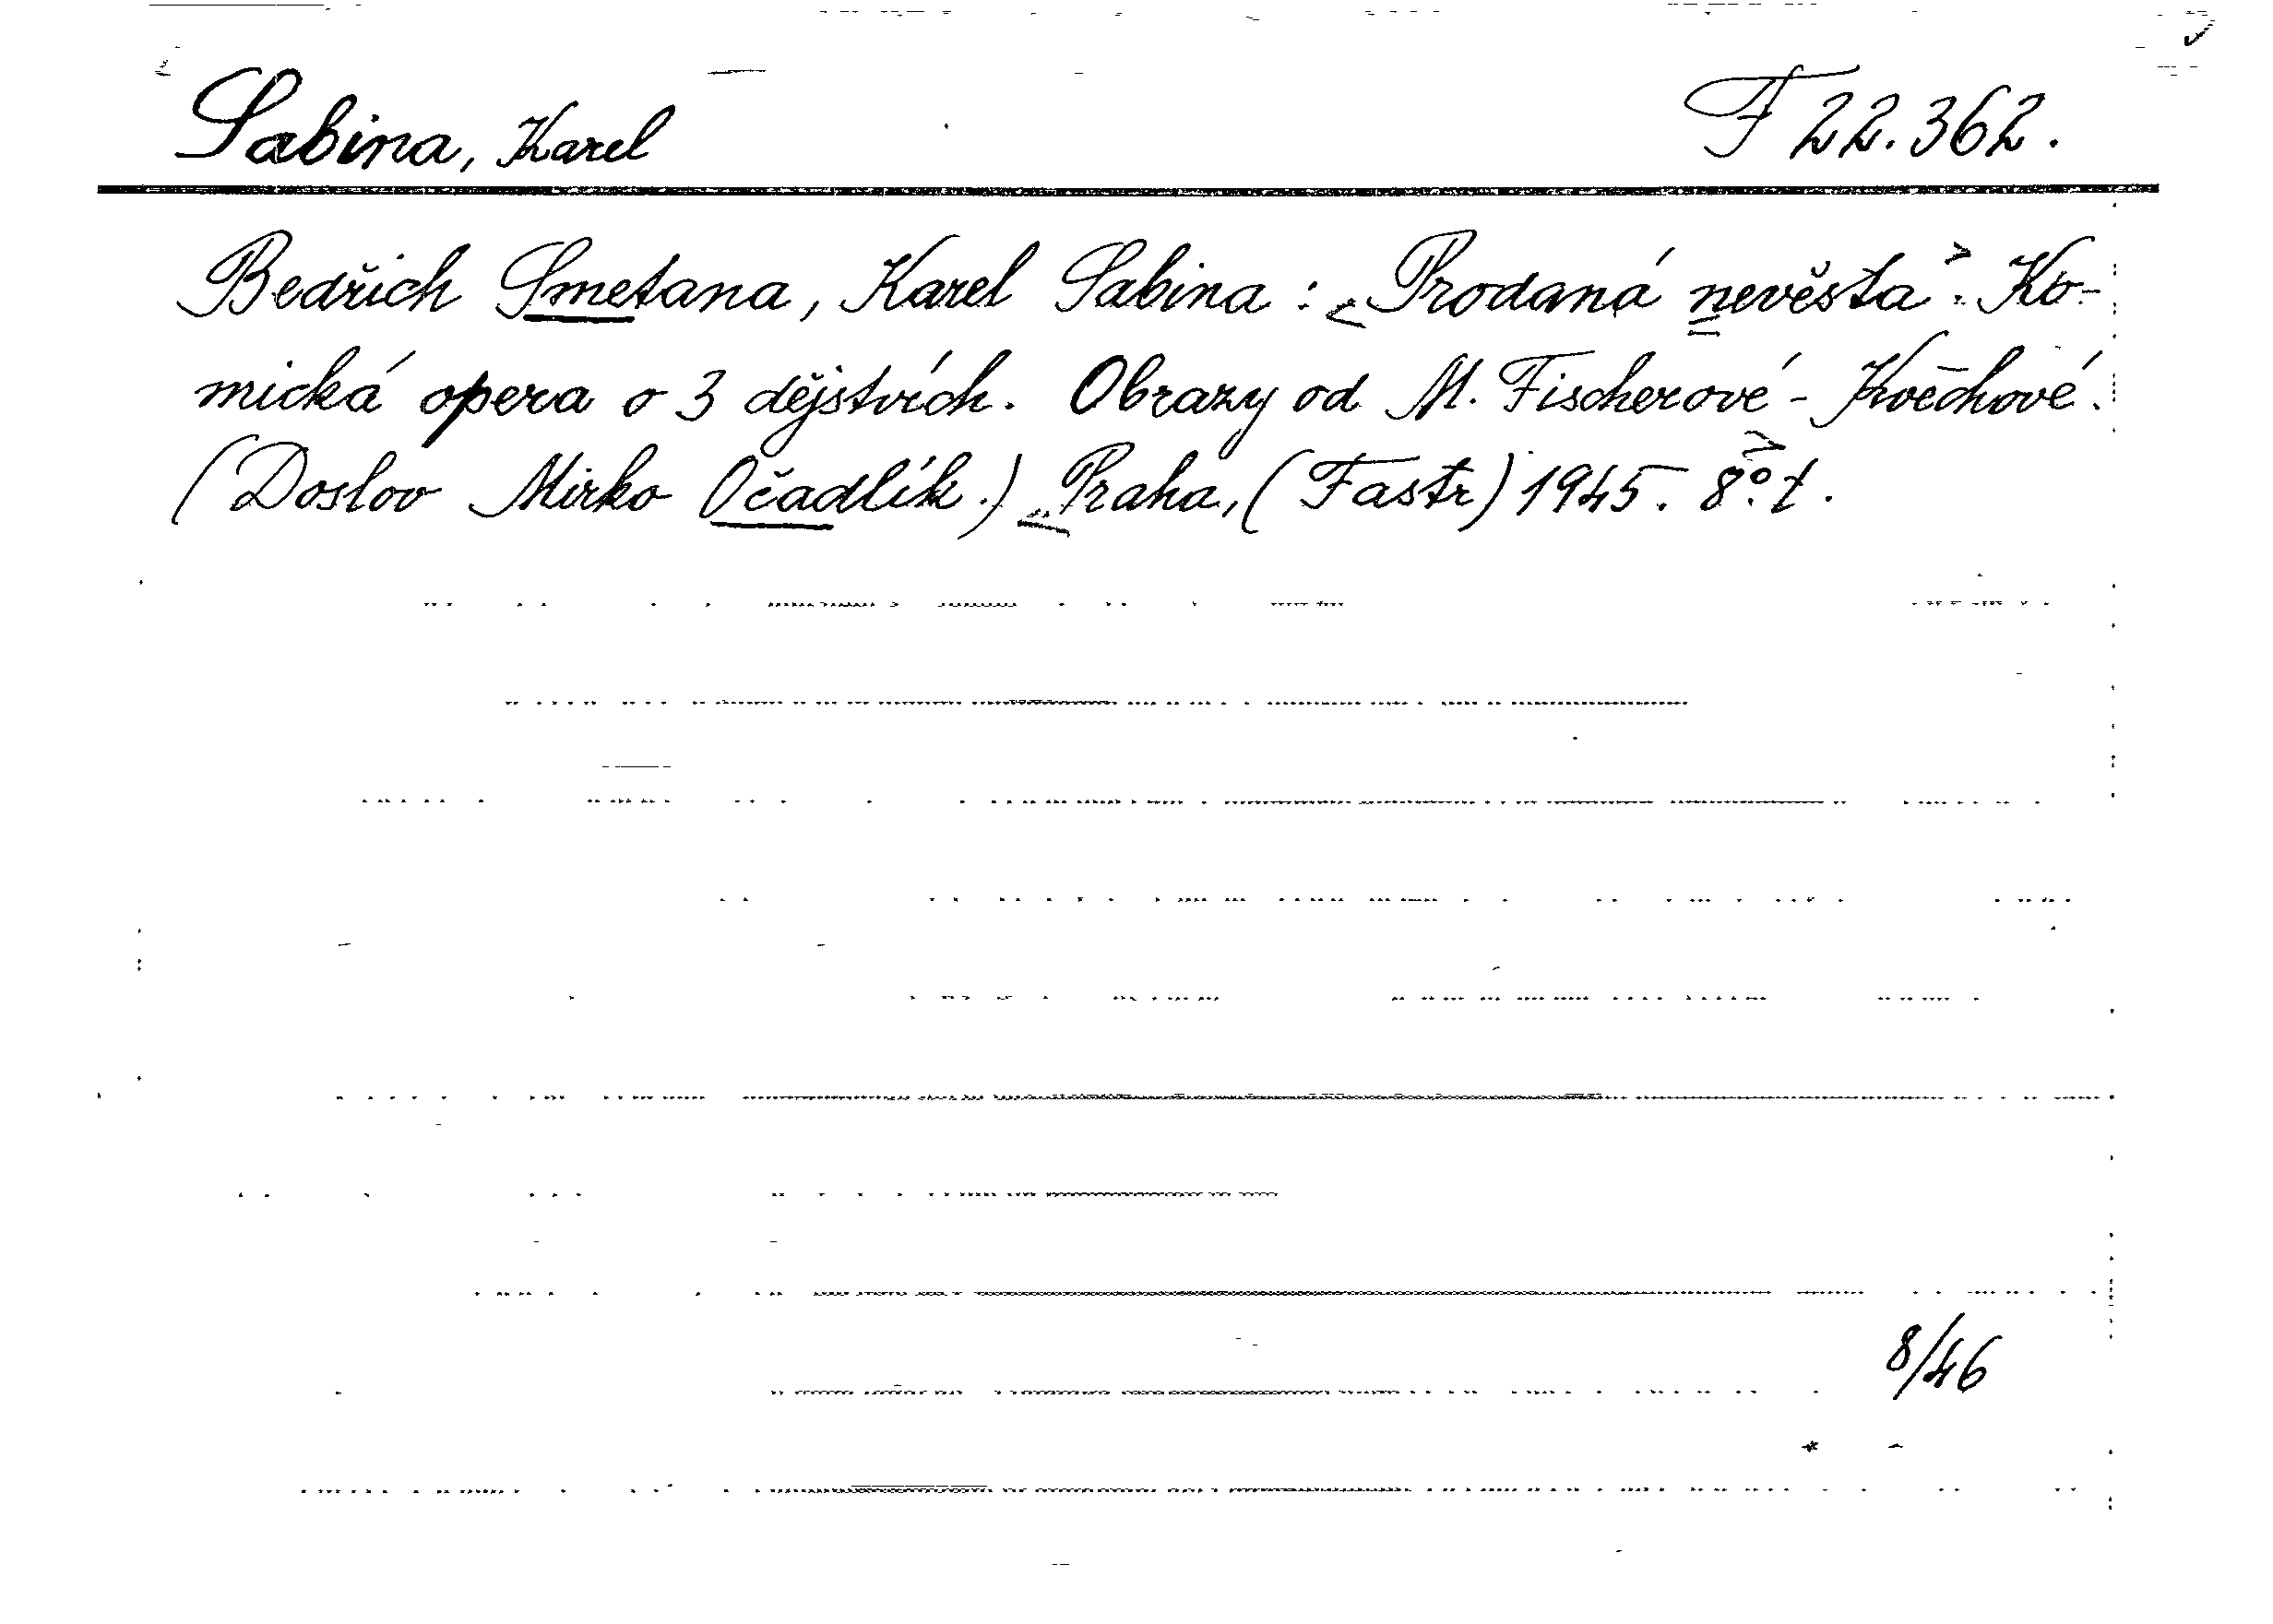 Sabina, Karel
F 22.362.
Bedřich Smetana, Karel Sabina: „Prodaná nevěsta". Ko-
mická opera o 3 dějstvích. Obrazy od M. Fischerové-Kvěchové.
(Doslov Mirko Očadlík.) Praha, (Fastr) 1945. 8°. t.
8/46